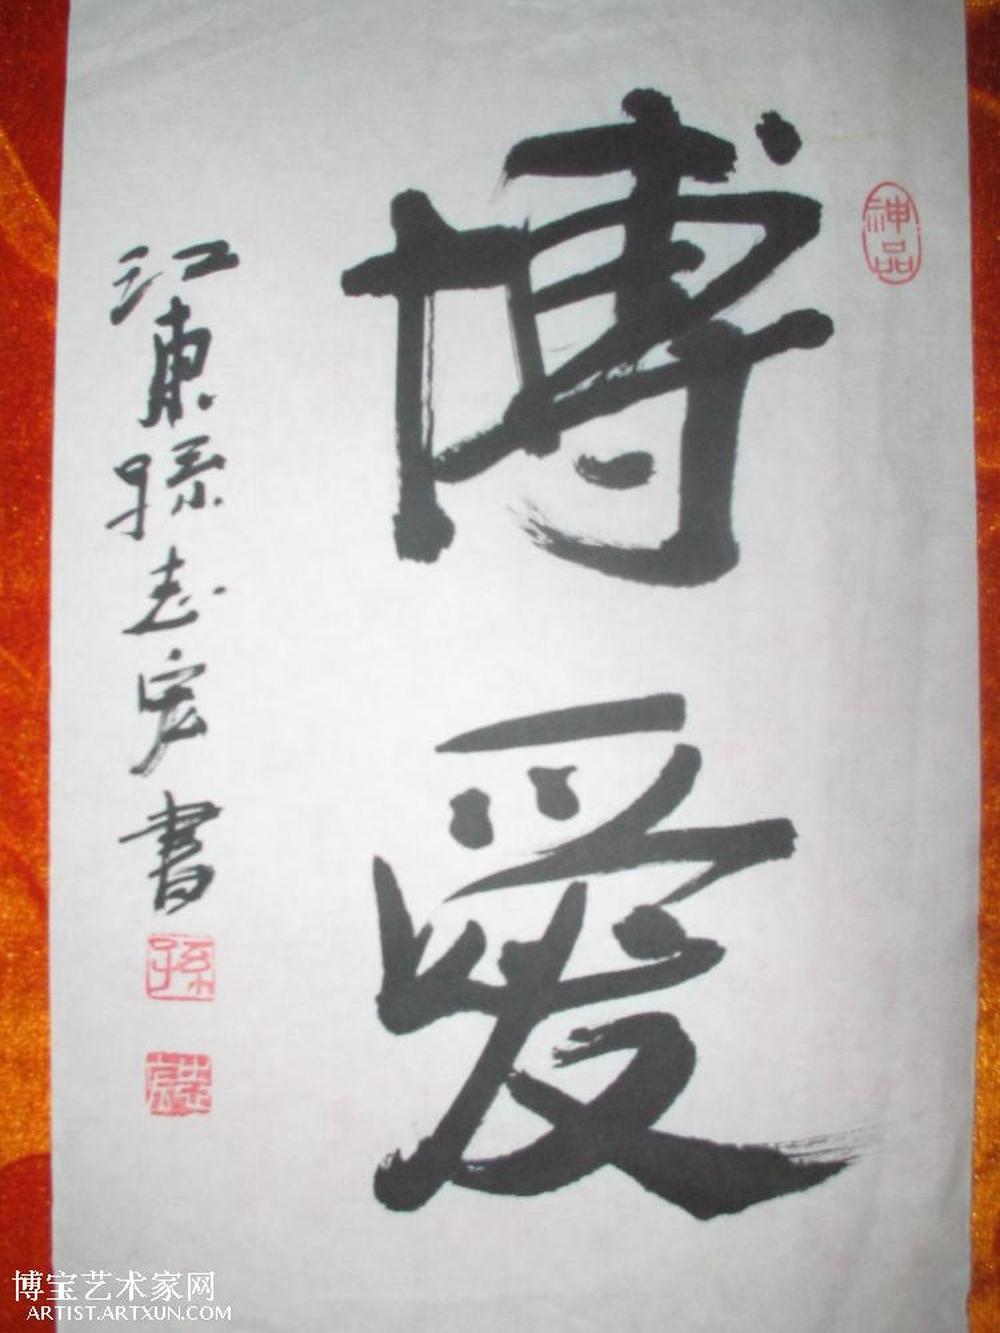 神品
博愛
江東孫志宏書
孫
志宏
博宝艺术家网
ARTIST.ARTXUN.COM